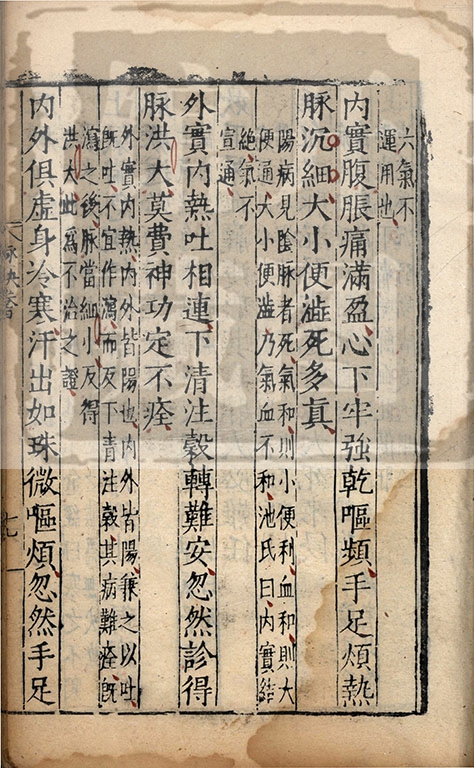 六氣不
運用也
內實腹脹痛滿盈心下牢強乾嘔頻手足煩熱
脉沉細大小便澁死多真
陽病見陰脉者死氣和則小便利血和則大
便通大小便澁乃氣血不和池氏曰內實結
絶氣不
宣通
外實內熱吐相連下清注穀轉難安忽然診得
脉洪大莫費神功定不痊
外實內熱內外皆陽也內外皆陽兼之以吐
旣吐不宜作瀉而反下青注穀其病難痊旣
瀉之後脉當細小反得
洪大此爲不治之證
內外俱虛身冷寒汗出如珠微嘔煩忽然手足